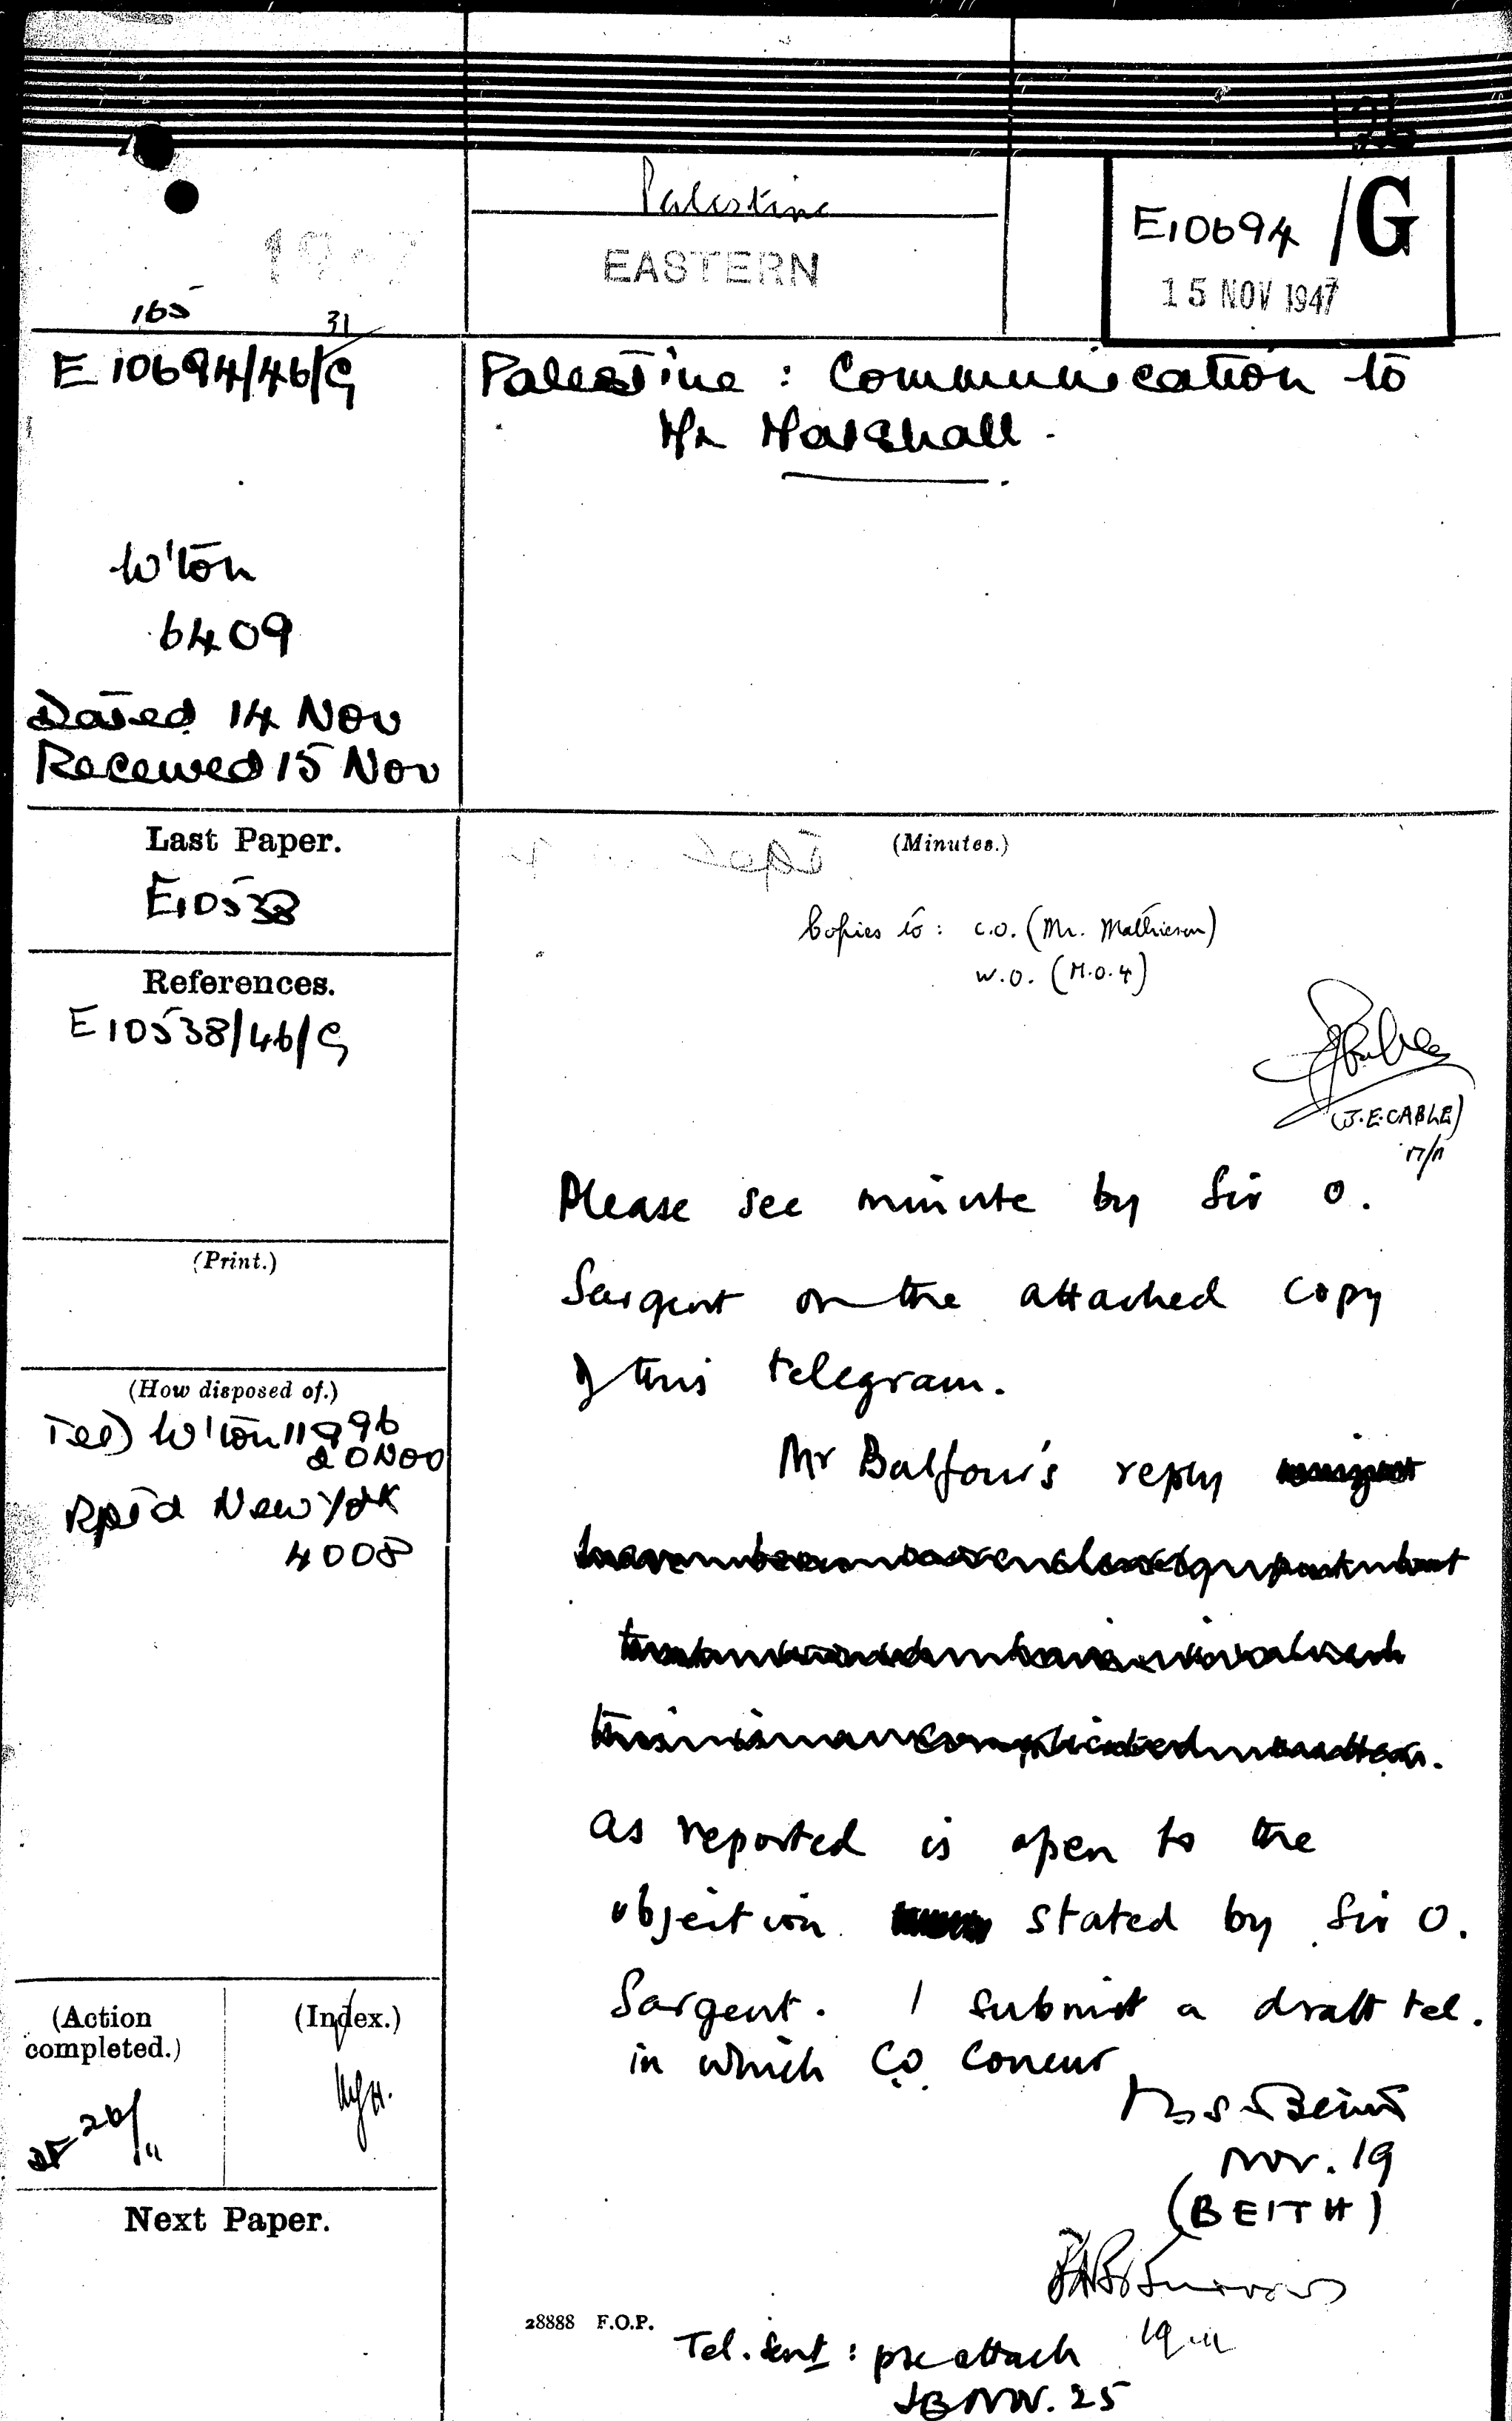 Palestine
EASTERN
E10694 /G
15 NOV 1947
1947
165 31
E 10694/46/G
Palestine : Communication to
Mr Marshall.
W'ton
6409
Dated 14 Nov
Received 15 Nov
Last Paper.
E10538
References.
E10538/46/G
(Print.)
(How disposed of.)
Tel) W'ton 11996
20 Nov
Rptd New York
4008
(Action
completed.)
26/11
(Index.)
Next Paper.
(Minutes.)
Copies to : C.O. (Mr. Mathieson)
W.O. (M.O.4)
(J.E. CABLE)
17/11
Please see minute by Sir O.
Sargent on the attached copy
of this telegram.
Mr Balfour's reply
as reported is open to the
objection stated by Sir O.
Sargent. I submit a draft tel.
in which C.O. concur
Beith
Nov. 19
(BEITH)
19.11
28888 F.O.P.
Tel. sent : pse attach
JB Nov. 25